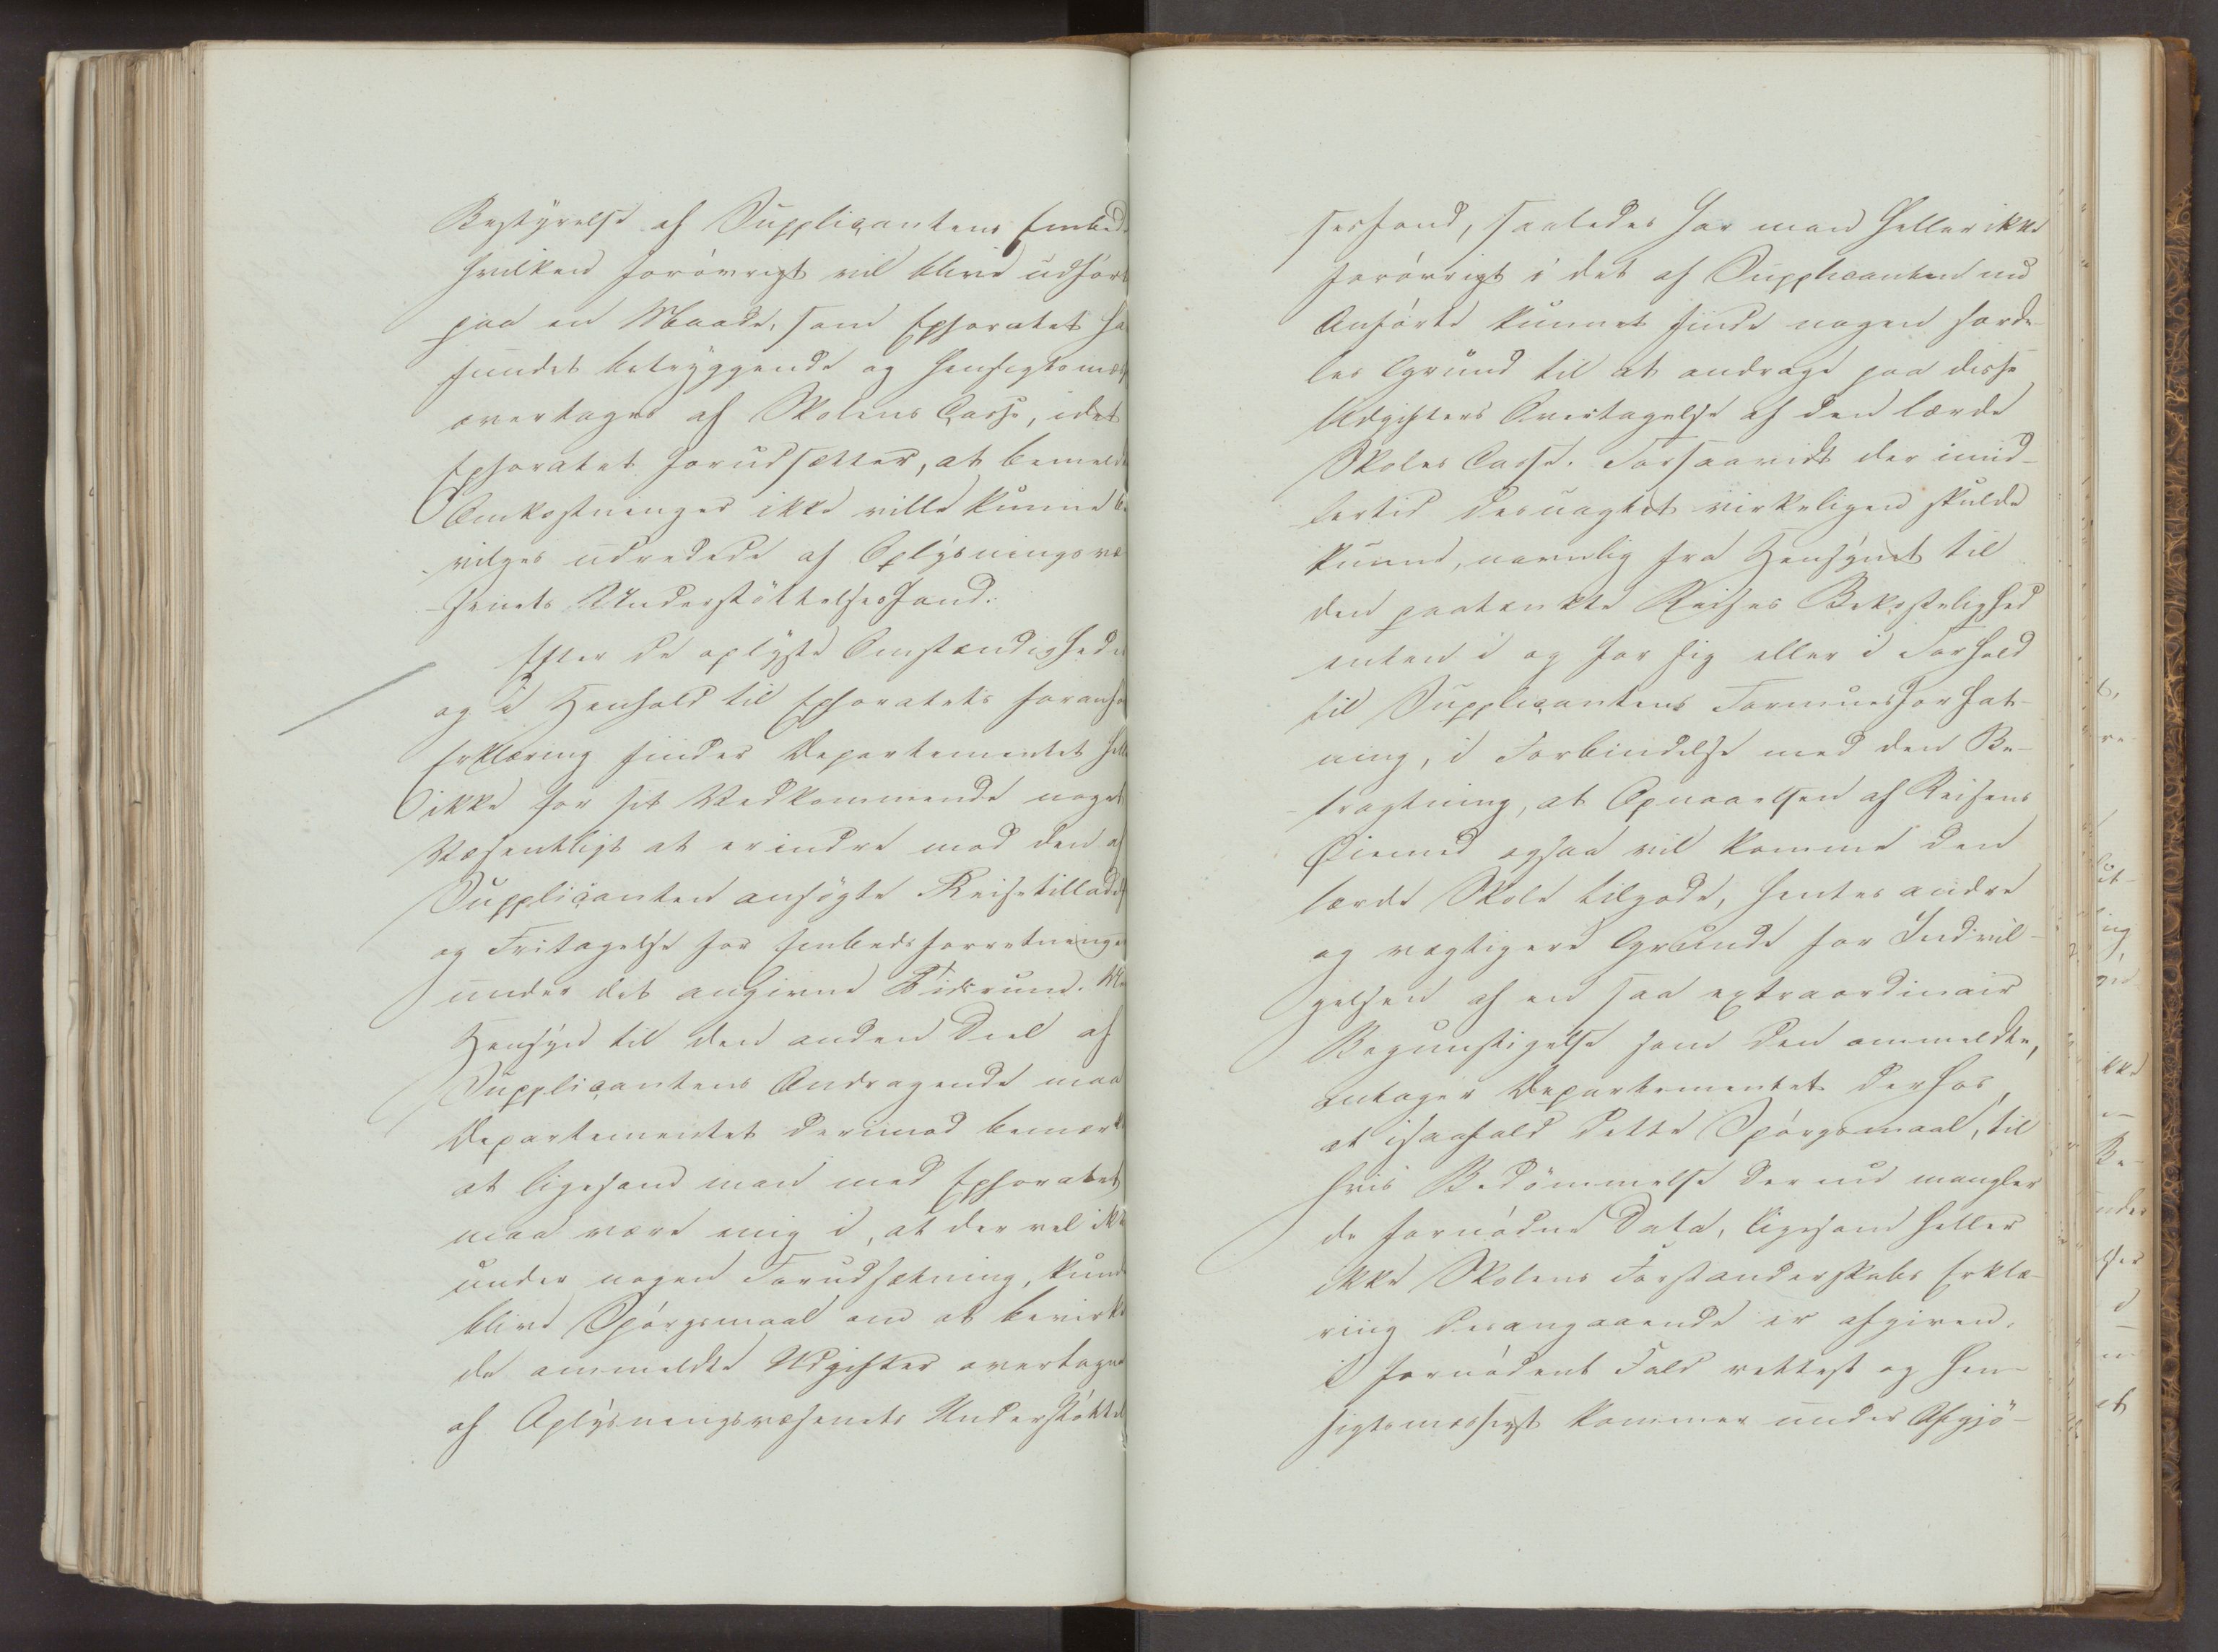 Bestyrelse af Supplicantens Embed
hvilken forøvrigt vil blive udført
paa en Maade, som Ephoratet ha
fundet betryggende og hensigtsmæss
overtages af Skolens Casse, idet
Ephoratet forudsætter, at bemeldt
Omkostninger ikke ville kunne be
vilges udredede af Oplysningsvæ
senets Understøttelsesfond.
Efter de oplyste Omstændighede
og i Henhold til Ephoratets foranfø
Erklæring finder Departementet hell
ikke for sit Vedkommende noget
Væsentligt at erindre mod den af
Supplicanten ansøgte Reisetillade
og Fritagelse for Embedsforretninger
under det angivne Tidsrum.
Hensyn til den anden Deel af
Supplicantens Andragende maa
Departementet derimod bemærk
at ligesom man med Ephoratet
maa være enig i, at der vel ikk
under nogen Forudsætning, kund
blive Spørgsmaal om at bevirk
de ommeldte Udgifter overtagne
af Oplysningsvæsenets Understøttel
sesfond, saaledes har man heller ikke
forøvrigt i det af Supplicanten nu
Anførte kunnet finde nogen sorde-
les Grund til at andrage paa disse
Udgifters Overtagelse af den lærde
Skoles Casse. Forsaavidt der imid-
lertid desuagtet virkeligen skulde
kunne, navnlig fra Hensynet til
den paatænkte Reises Bekostelighed
enten i og for sig eller i Forhold
til Supplicantens Formuesforfat-
ning, i Forbindelse med den Be-
tragtning, at Opnaaelsen af Reisens
Øiemed ogsaa vil komme den
lærde Skole tilgode, hentes andre
og vægtigere Grunde for Indvil-
gelsen af en saa extraordinair
Begunstigelse som den ommeldte,
antager Departementet derhos,
at isaafald dette Spørgsmaal, til
hvis Bedømmelse der nu mangler
de fornødne Data, ligesom heller
ikke Skolens Forstanderskabs Erklæ-
ring desangaaende er afgiven,
i fornødent Fald rettest og hen-
sigtsmæssigst kommer under Afgjø-